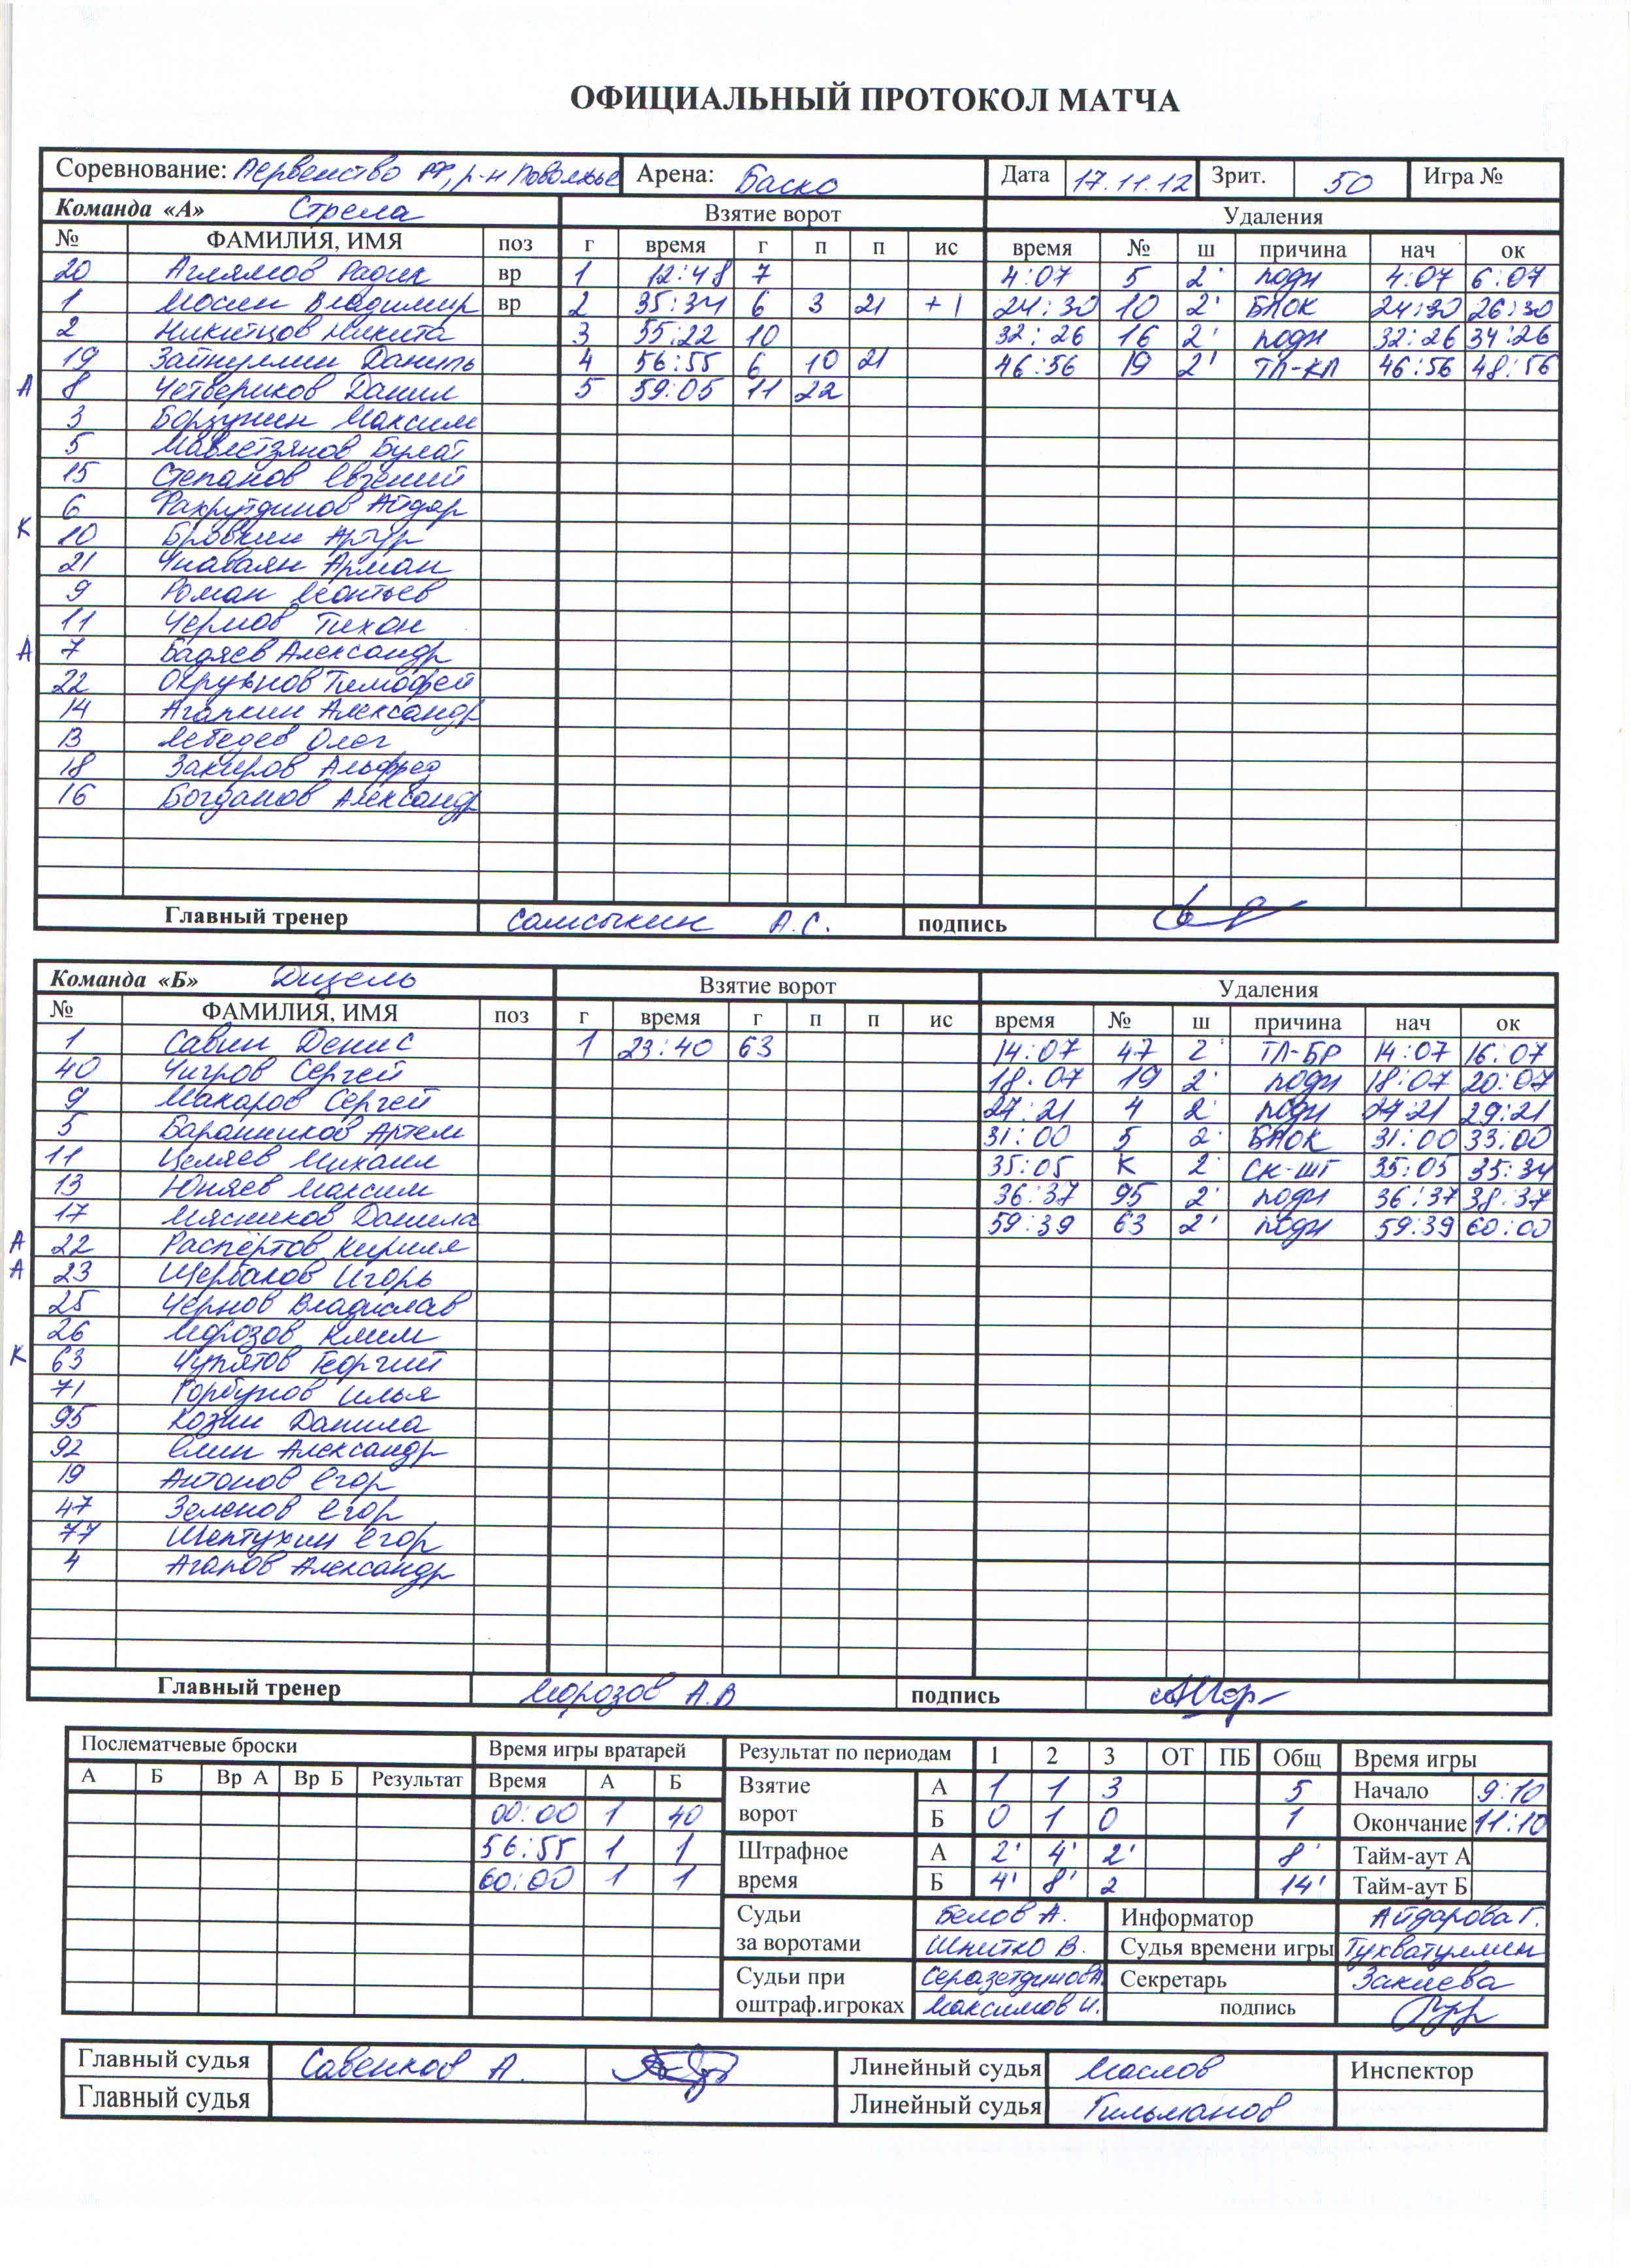 ОФИЦИАЛЬНЫЙ ПРОТОКОЛ МАТЧА
Соревнование: Первенство РФ, р-н Поволжье Арена: Баско Дата 17.11.12 Зрит. 50 Игра №
Команда «А» Стрела Взятие ворот Удаления
№ ФАМИЛИЯ, ИМЯ поз г время г п п ис время № ш причина нач ок
20 Аглямов Радик вр 1 12:48 7 4:07 5 2' подн 4:07 6:07
1 Мосин Владимир вр 2 35:34 6 3 21 +1 24:30 10 2' БЛОК 24:30 26:30
2 Никитцов Никита 3 55:22 10 32:26 16 2' подн 32:26 34:26
19 Зайнуллин Даниль 4 56:55 6 10 21 46:56 19 2' ТЛ-КЛ 46:56 48:56
А 8 Четвериков Данил 5 59:05 11 22
3 Борзунин Максим
5 Мавлетзянов Булат
15 Степанов Евгений
6 Фахрутдинов Айдар
К 10 Бровкин Артур
21 Чнаваян Арман
9 Роман Леонтьев
11 Чермов Тихон
А 7 Бадяев Александр
22 Окрунов Тимофей
14 Агапкин Александр
13 Лебедев Олег
18 Закиров Альфред
16 Богданов Александр
Главный тренер Самсыкин А.С. подпись
Команда «Б» Дизель Взятие ворот Удаления
№ ФАМИЛИЯ, ИМЯ поз г время г п п ис время № ш причина нач ок
1 Савин Денис 1 23:40 63 14:07 47 2' ТЛ-БР 14:07 16:07
40 Чигров Сергей 18:07 19 2' подн 18:07 20:07
9 Макаров Сергей 27:21 4 2' подн 27:21 29:21
5 Баранников Артем 31:00 5 2' БЛОК 31:00 33:00
11 Целяев Михаил 35:05 К 2' СК-ШТ 35:05 35:34
13 Юняев Максим 36:37 95 2' подн 36:37 38:37
17 Мясников Данила 59:39 63 2' подн 59:39 60:00
А 22 Распертов Кирилл
А 23 Щербаков Игорь
25 Чернов Владислав
26 Морозов Клим
К 63 Чупятов Георгий
71 Горбунов Илья
95 Козин Данила
92 Елин Александр
19 Антонов Егор
47 Зеленов Егор
77 Шептухин Егор
4 Агапов Александр
Главный тренер Морозов А.В подпись
Послематчевые броски Время игры вратарей Результат по периодам 1 2 3 ОТ ПБ Общ Время игры
А Б Вр А Вр Б Результат Время А Б Взятие ворот А 1 1 3 5 Начало 9:10
00:00 1 40 Б 0 1 0 1 Окончание 11:10
56:55 1 1 Штрафное время А 2' 4' 2' 8' Тайм-аут А
60:00 1 1 Б 4' 8' 2 14' Тайм-аут Б
Судьи за воротами Белов А. Информатор Айдарова Г.
Шнитко В. Судья времени игры Тухватуллин
Судьи при оштраф.игроках Серазетдинов А. Секретарь Закиева
Максимов И. подпись
Главный судья Савенков А. Линейный судья Маслов Инспектор
Главный судья Линейный судья Гильманов